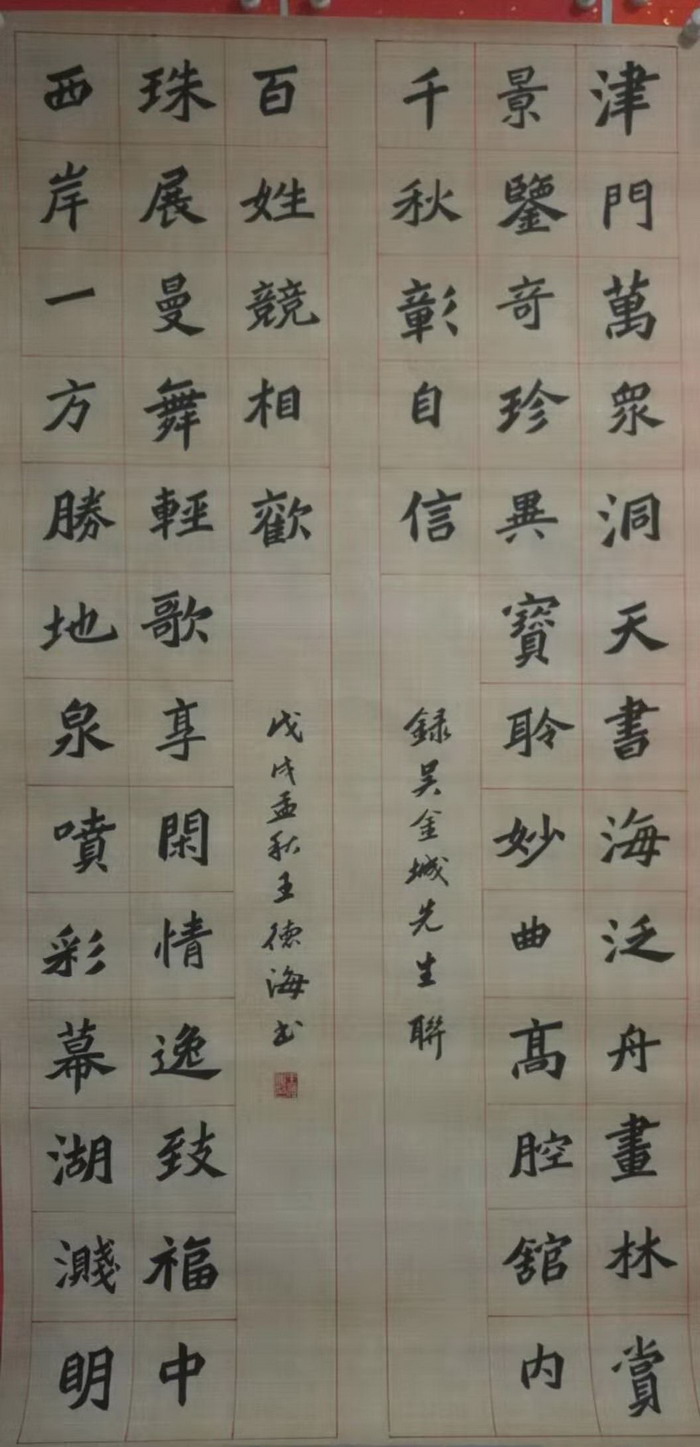 津門萬衆洞天書海泛舟畫林賞
景鑒奇珍異寶聆妙曲髙腔舘内
千秋彰自信
録吴金城先生聯
西岸一方勝地泉噴彩幕湖濺明
珠展曼舞輕歌享閑情逸致福中
百姓競相歡
戊戌孟秋王德海書